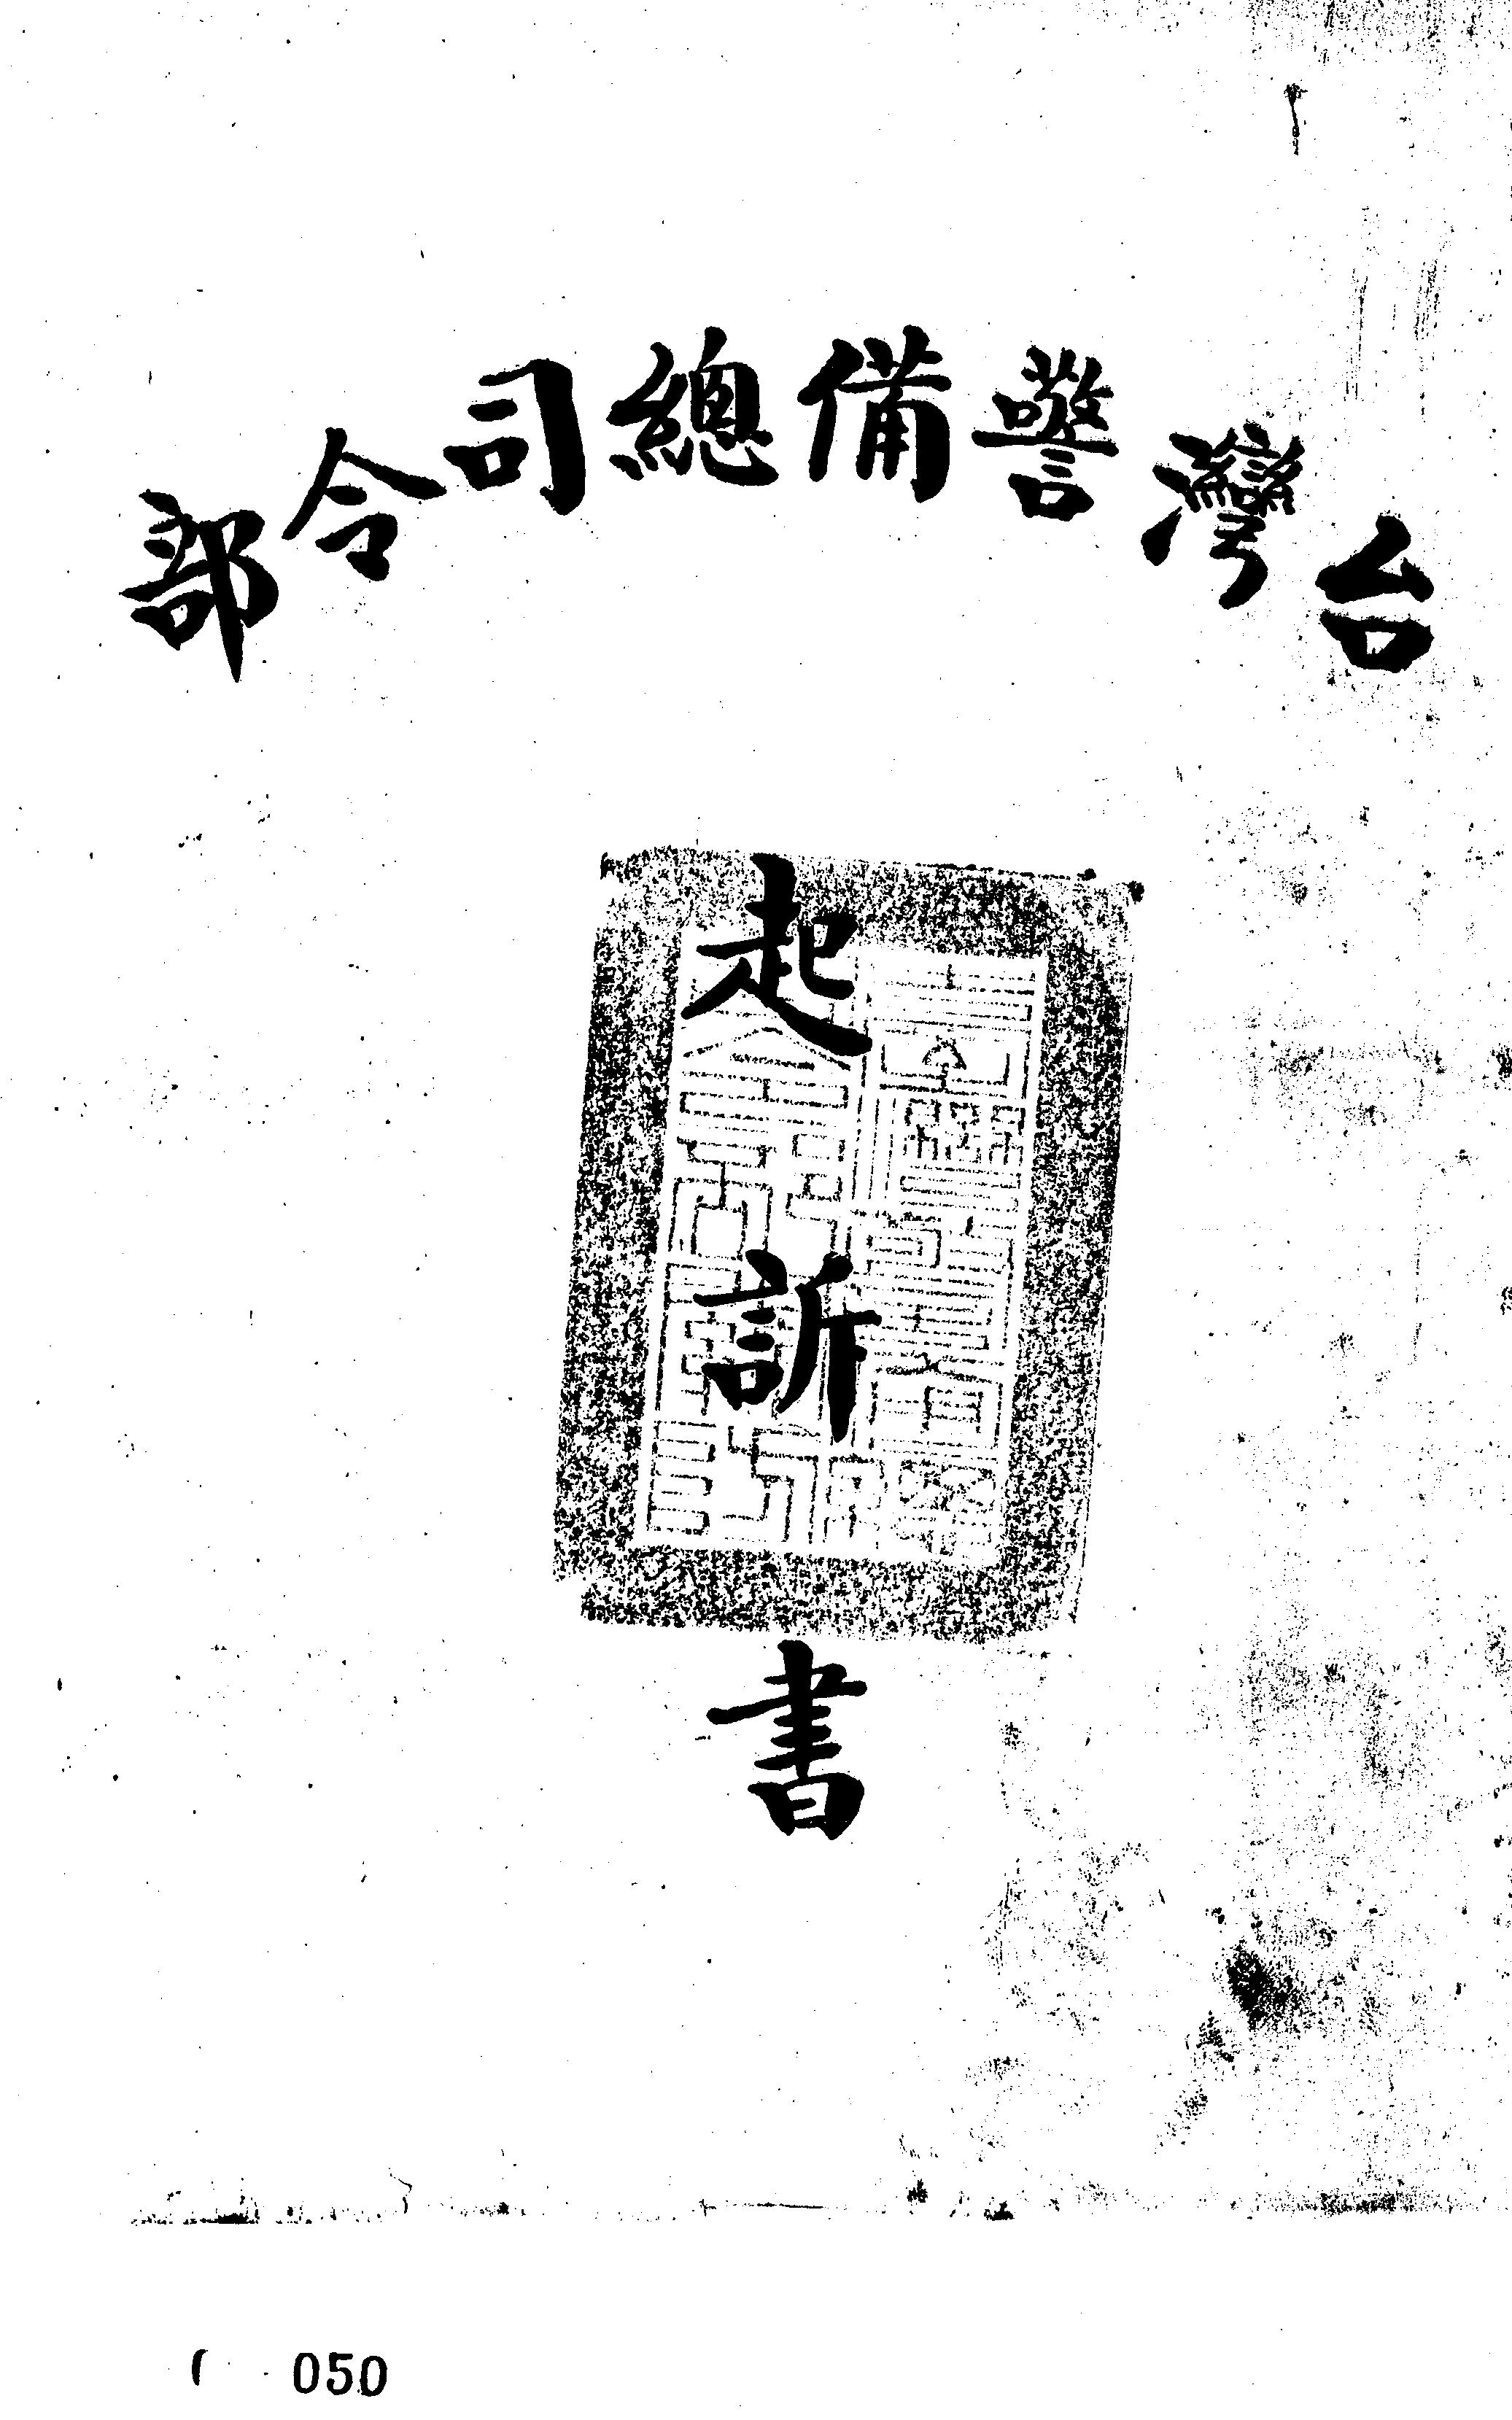 台灣警備總司令部
起訴書
050